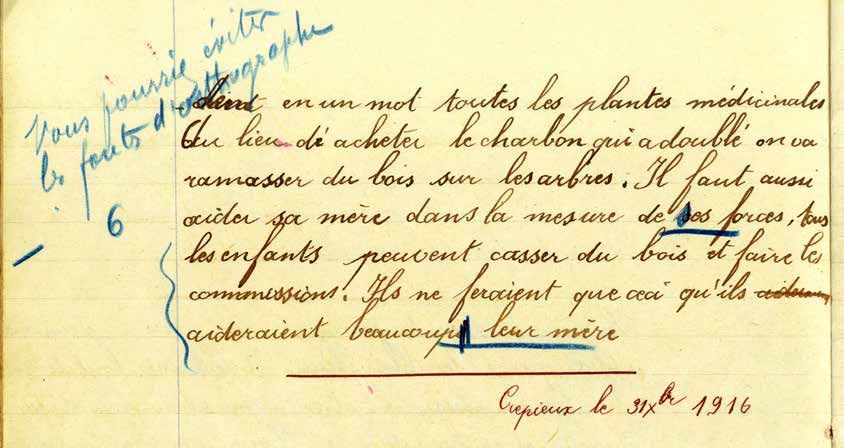 Vous pourriez éviter
les fautes d'orthographe
6
en un mot toutes les plantes médicinales
Au lieu dé acheter le charbon qui a doublé on va
ramasser du bois sur les arbres. Il faut aussi
aider sa mère dans la mesure de ses forces, tous
les enfants peuvent casser du bois et faire les
commissions. Ils ne feraient que ceci qu'ils
aideraient beaucoup leur mère
Crepieux le 31 Xbr 1916